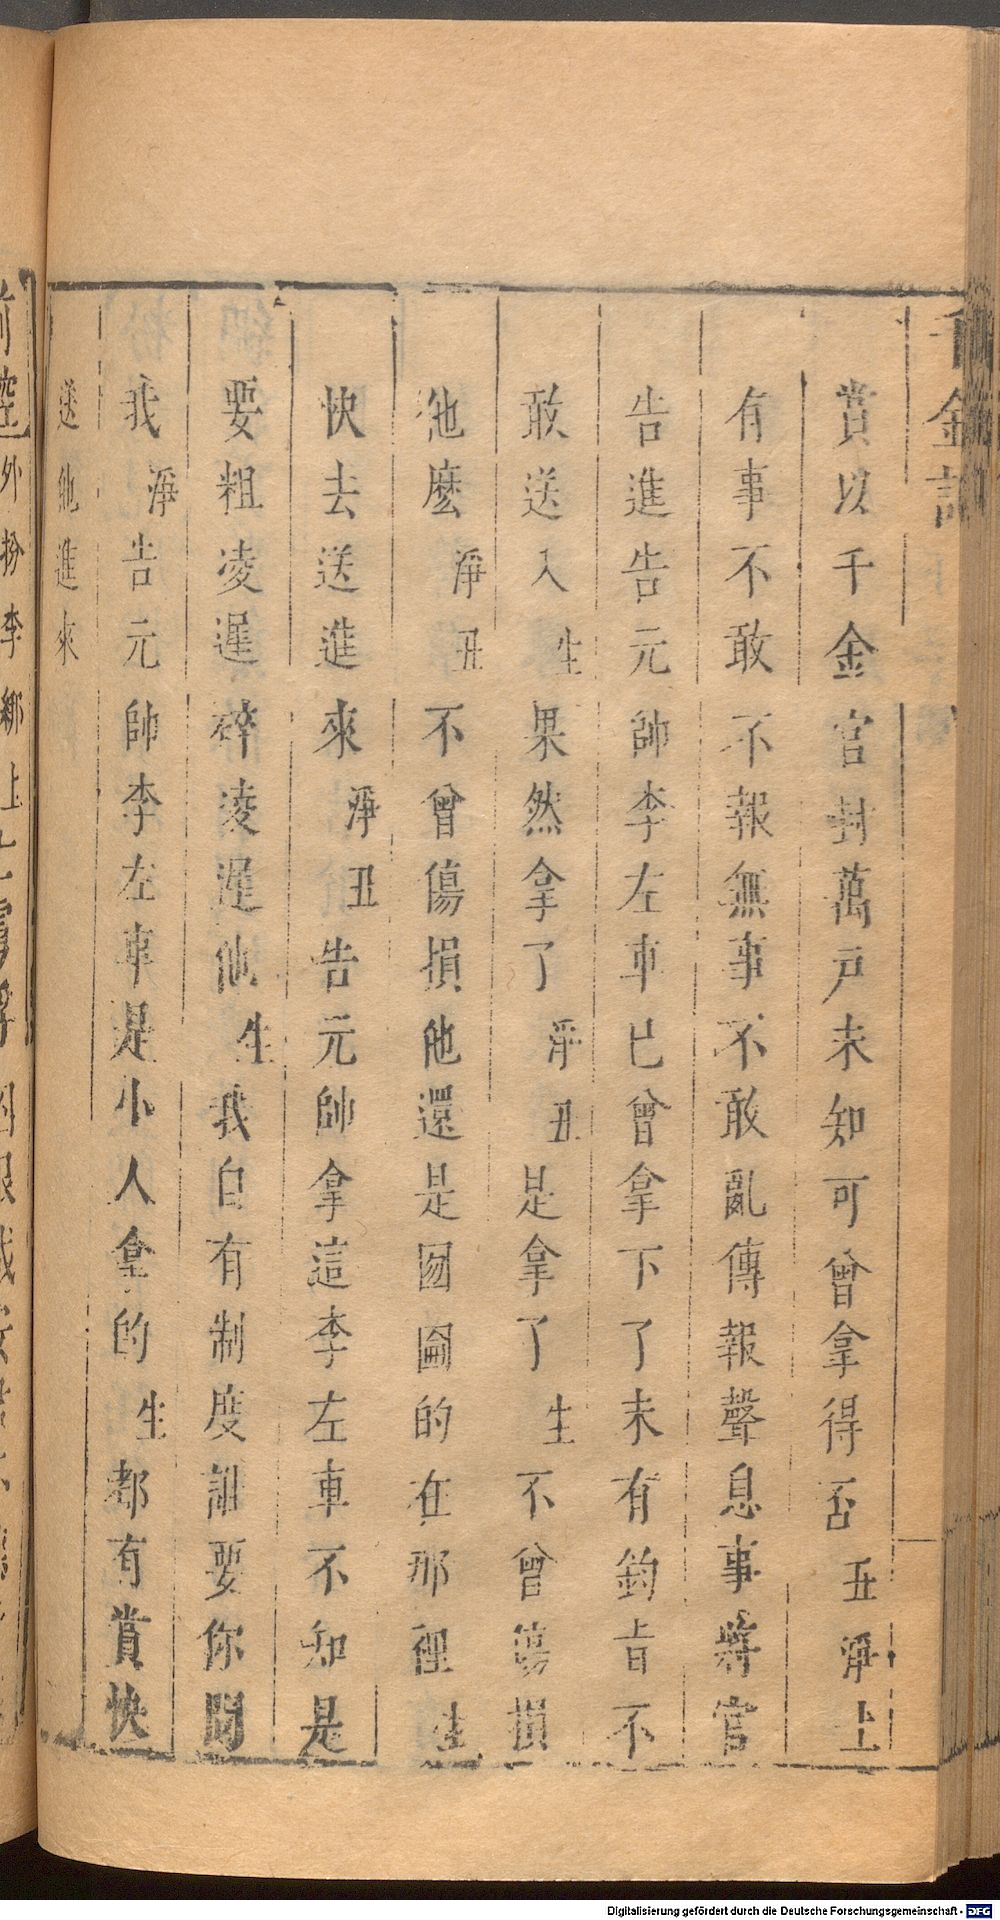 千金記
賞以千金官封萬戶未知可曾拿得否丑淨上
有事不敢不報無事不敢亂傳報聲息事將官
告進告元帥李左車已曾拿下了未有鈞旨不
敢送入生果然拿了淨丑是拿了生不曾傷損
他麽淨丑不曾傷損他還是囫圇的在那裡生
快去送進來淨丑告元帥拿這李左車不知是
要粗凌遲碎凌遲他生我自有制度誰要你問
我淨告元帥李左車是小人拿的生都有賞快
送他進來
前腔外扮李綁上
Digitalisierung gefördert durch die Deutsche Forschungsgemeinschaft - DFG